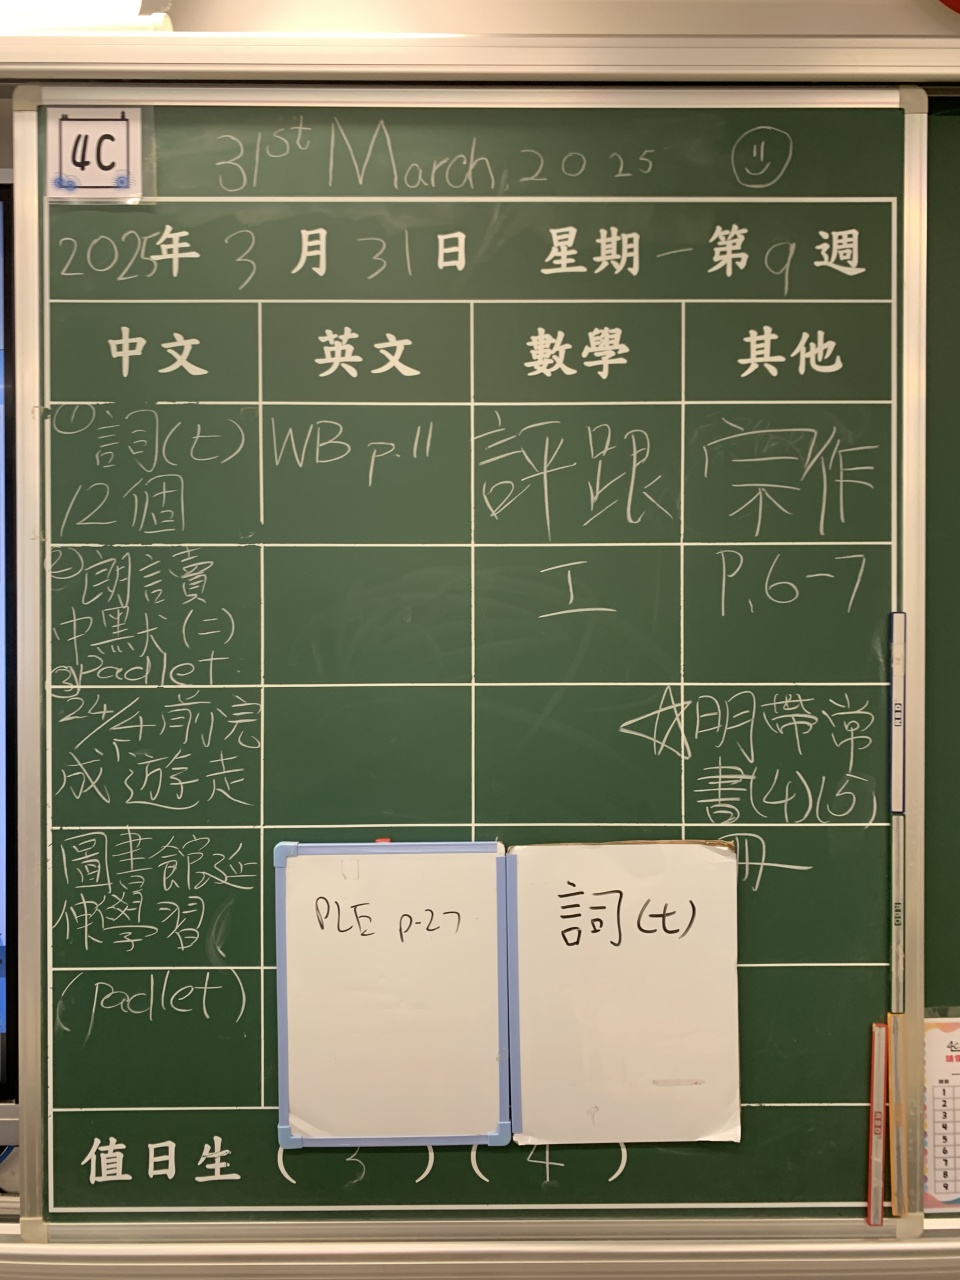 4C
31st March, 2025
2025年 3 月 31 日 星期一 第 9 週
中文 英文 數學 其他
① 詞(七)
12個
WB p.11
評跟
宗作
② 朗讀
中默(二)
③ Padlet
工
P.6-7
24/4前完
成遊走
☆明帶常
書(4)(5)
圖書館延
伸學習
冊
(padlet)
PLE p.27
詞(七)
值日生 ( 3 ) ( 4 )
1
2
3
4
5
6
7
8
9